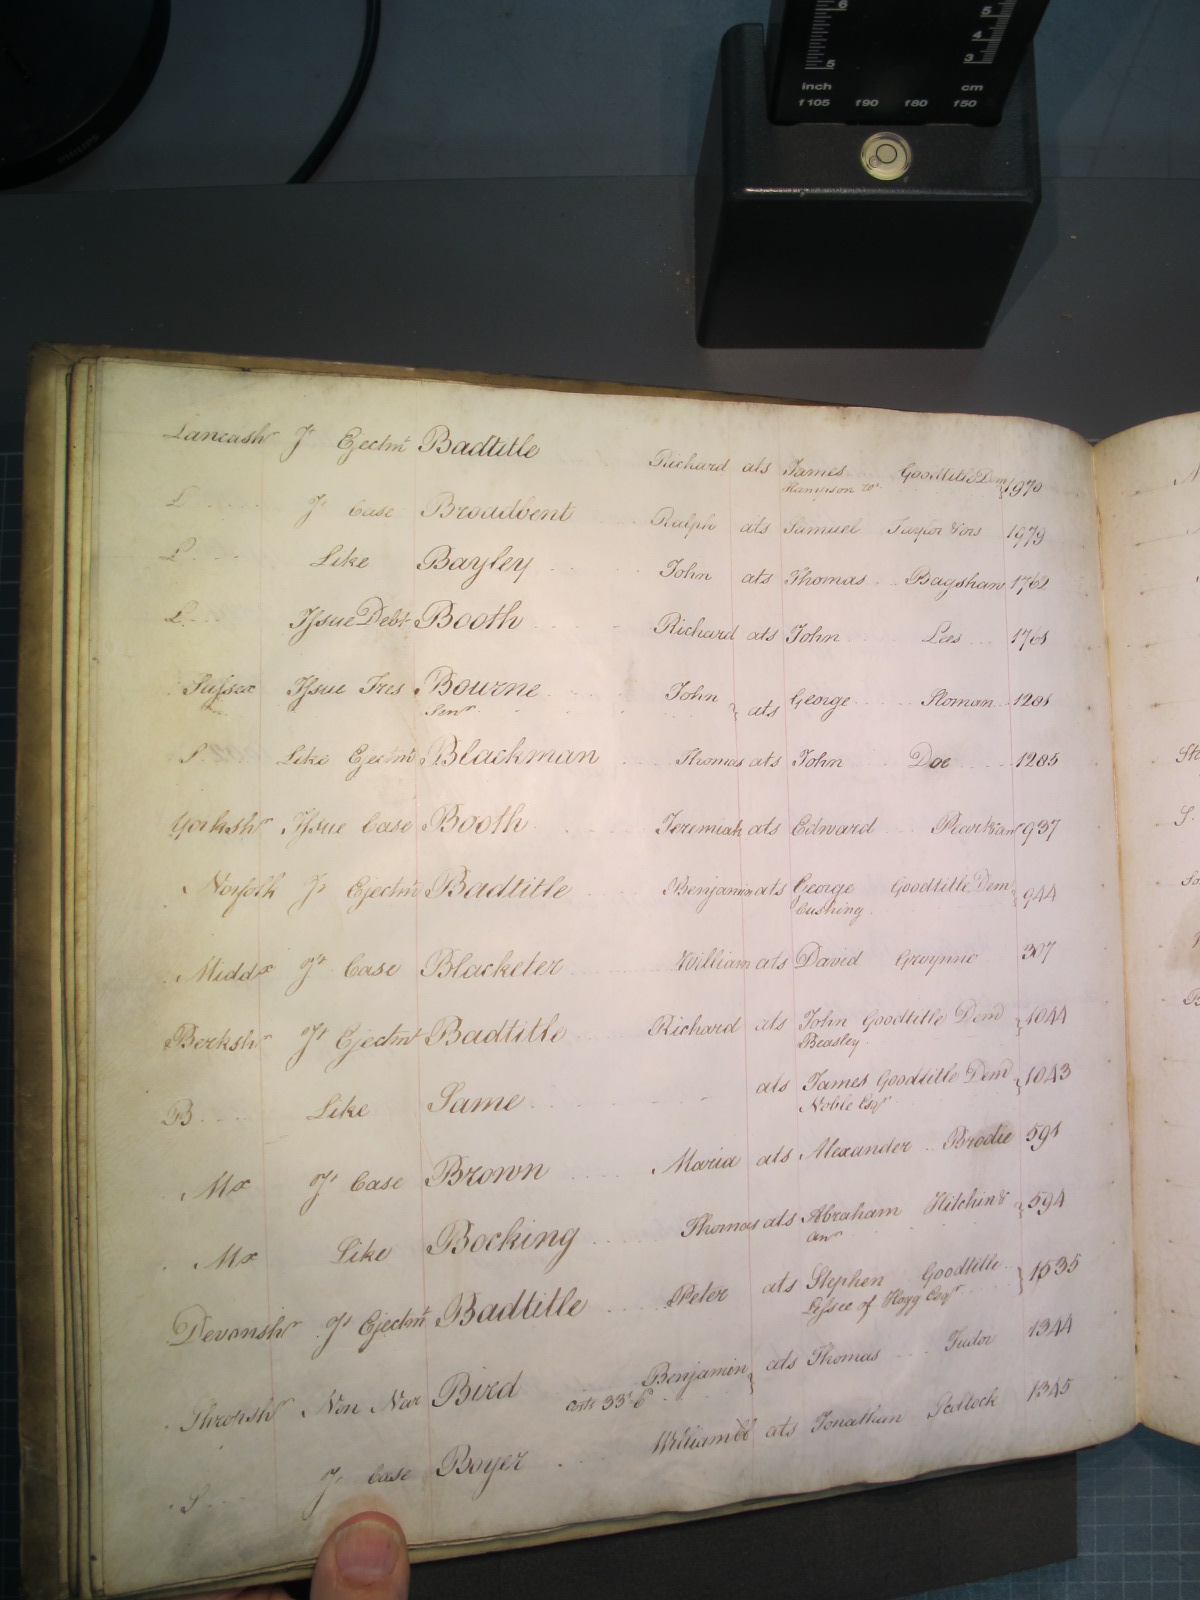 6 5
5 4
3
inch cm
f105 f90 f80 f50
PHILIPS
Lancashr Jt Ejectmt Badtitle Richard ats James Goodtitle Dem 1970
Hampson
L Jt Case Broadbent Ralph ats Samuel Taylor & ors 1979
L Like Bayley John ats Thomas Bagshaw 1762
L Issue Debt Booth Richard ats John Lees 1761
Sussex Issue Tres Bourne John ats George Sloman 1281
Senr
S Like Ejectmt Blackman Thomas ats John Doe 1285
Yorkshr Issue Case Booth Jeremiah ats Edward 937
Norfolk Jt Ejectmt Badtitle Benjamin ats George Goodtitle Dem 944
Cushing
Middx Jt Case Blacketer William ats David Gwynne 307
Berkshr Jt Ejectmt Badtitle Richard ats John Goodtitle Demd 1044
Beasley
B Like Same ats James Goodtitle Demd 1043
Noble Esqr
Mx Jt Case Brown Maria ats Alexander Brodie 591
Mx Like Bocking Thomas ats Abraham Hitchin & 594
anr
Devonshr Jt Ejectmt Badtitle Peter ats Stephen Goodtitle 1535
Lessee of Hogg Esqr
Shropshr Non Nar Bird costs 33s 6 Benjamin ats Thomas Tudor 1344
S Jt Case Boyer William ats Jonathan Pedlock 1345